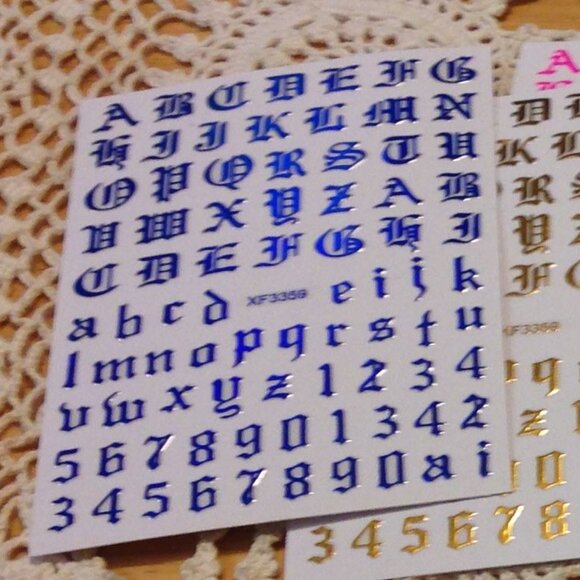 A B C D E F G
H I J K L M N
O P Q R S T U
V W X Y Z A B
C D E F G H I
a b c d XF3359 e i j k
l m n o p q r s t u
v w x y z 1 2 3 4
5 6 7 8 9 0 1 3 4 2
3 4 5 6 7 8 9 0 a i
A
D
K L
R S
Y
F
XF3359
q
z
0
3 4 5 6 7 8